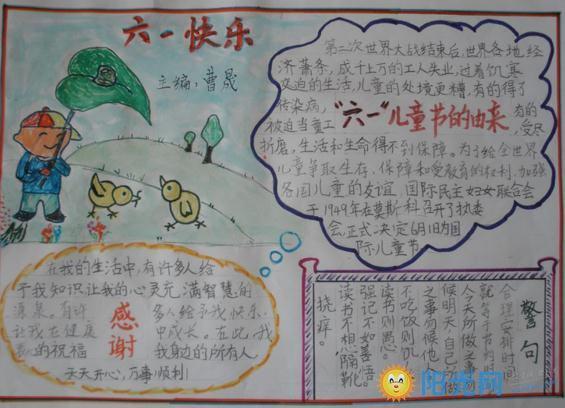 六一快乐
主编:曹晟
第二次世界大战结束后,世界各地,经
济萧条,成千上万的工人失业,过着饥寒
交迫的生活,儿童的处境更糟,有的得了
传染病,
"六一"儿童节的由来
有的
被迫当童工
,受尽
折磨,生活和生命得不到保障。为了给全世界
儿童争取生存、保障和受教育的权利,加强
各国儿童的友谊,国际民主妇女联合会
于1949年在莫斯科召开了执委
会,正式决定6月1日为国
际儿童节
在我的生活中,有许多人给
予我知识让我的心灵充满智慧的
源泉。有许 多人给予我快乐
让我在健康 中成长。在此,我
的祝福 我身边的所有人
感谢
天天开心,万事顺利!
警句
合理安排时间
就等于节约时
人今天所做之事勿
候明天,自己所做
之事勿候他
不吃饭则饥
读书则愚。
强记不如善悟
读书不相"隔靴
搔痒。
阳光网